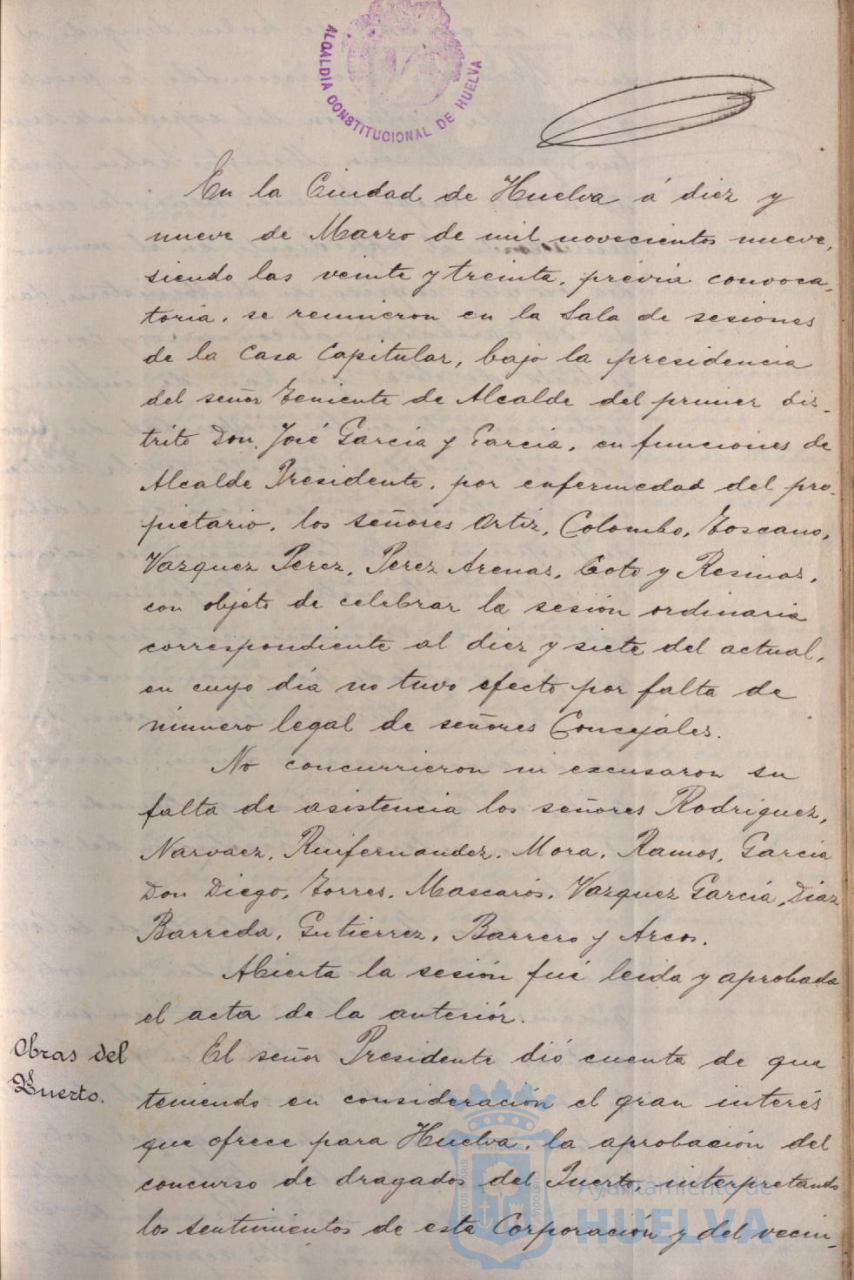 ALCALDIA CONSTITUCIONAL DE HUELVA
En la Ciudad de Huelva á diez y
nueve de Marzo de mil novecientos nueve,
siendo las veinte y treinta, previa convoca-
toria, se reunieron en la Sala de sesiones
de la Casa Capitular, bajo la presidencia
del señor Teniente de Alcalde del primer dis-
trito Don José García y García, en funciones de
Alcalde Presidente, por enfermedad del pro-
pietario, los señores Ortiz, Colombo, Toscano,
Vazquez Perez, Perez Arenas, Coto y Resinas,
con objeto de celebrar la sesión ordinaria
correspondiente al diez y siete del actual,
en cuyo día no tuvo efecto por falta de
número legal de señores Concejales.
No concurrieron ni excusaron su
falta de asistencia los señores Rodriguez,
Narvaez, Ruifernandez, Mora, Ramos, García
Don Diego, Torres, Mascarós, Vazquez García, Díaz
Barreda, Gutierrez, Barrero y Arcos.
Abierta la sesión fué leida y aprobada
el acta de la anteriór.
Obras del
Puerto.
El señor Presidente dió cuenta de que
teniendo en consideración el gran interés
que ofrece para Huelva, la aprobación del
concurso de dragados del Puerto, interpretando
los sentimientos de esta Corporación y del vecin-
Ayuntamiento de
HUELVA